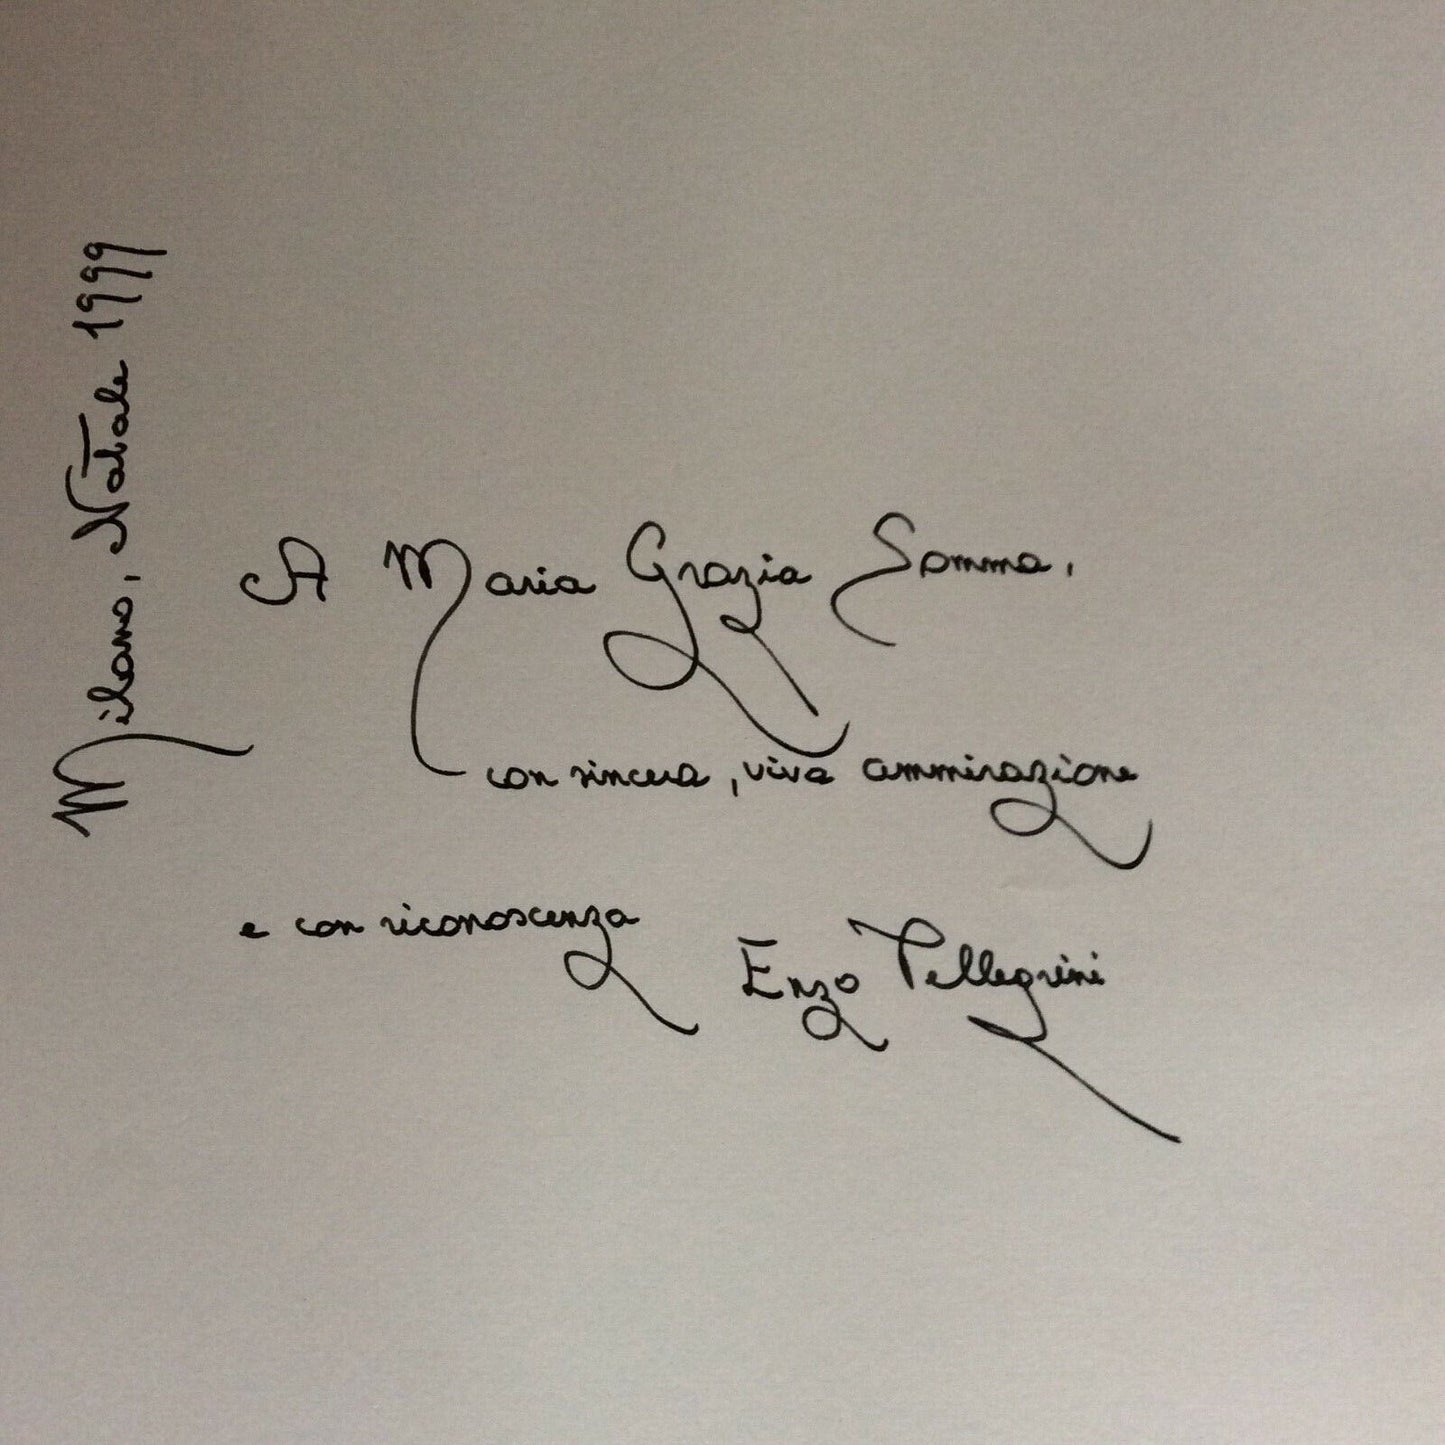 Milano, Natale 1999
A Maria Grazia Somma,
con sincera, viva ammirazione
e con riconoscenza
Enzo Pellegrini